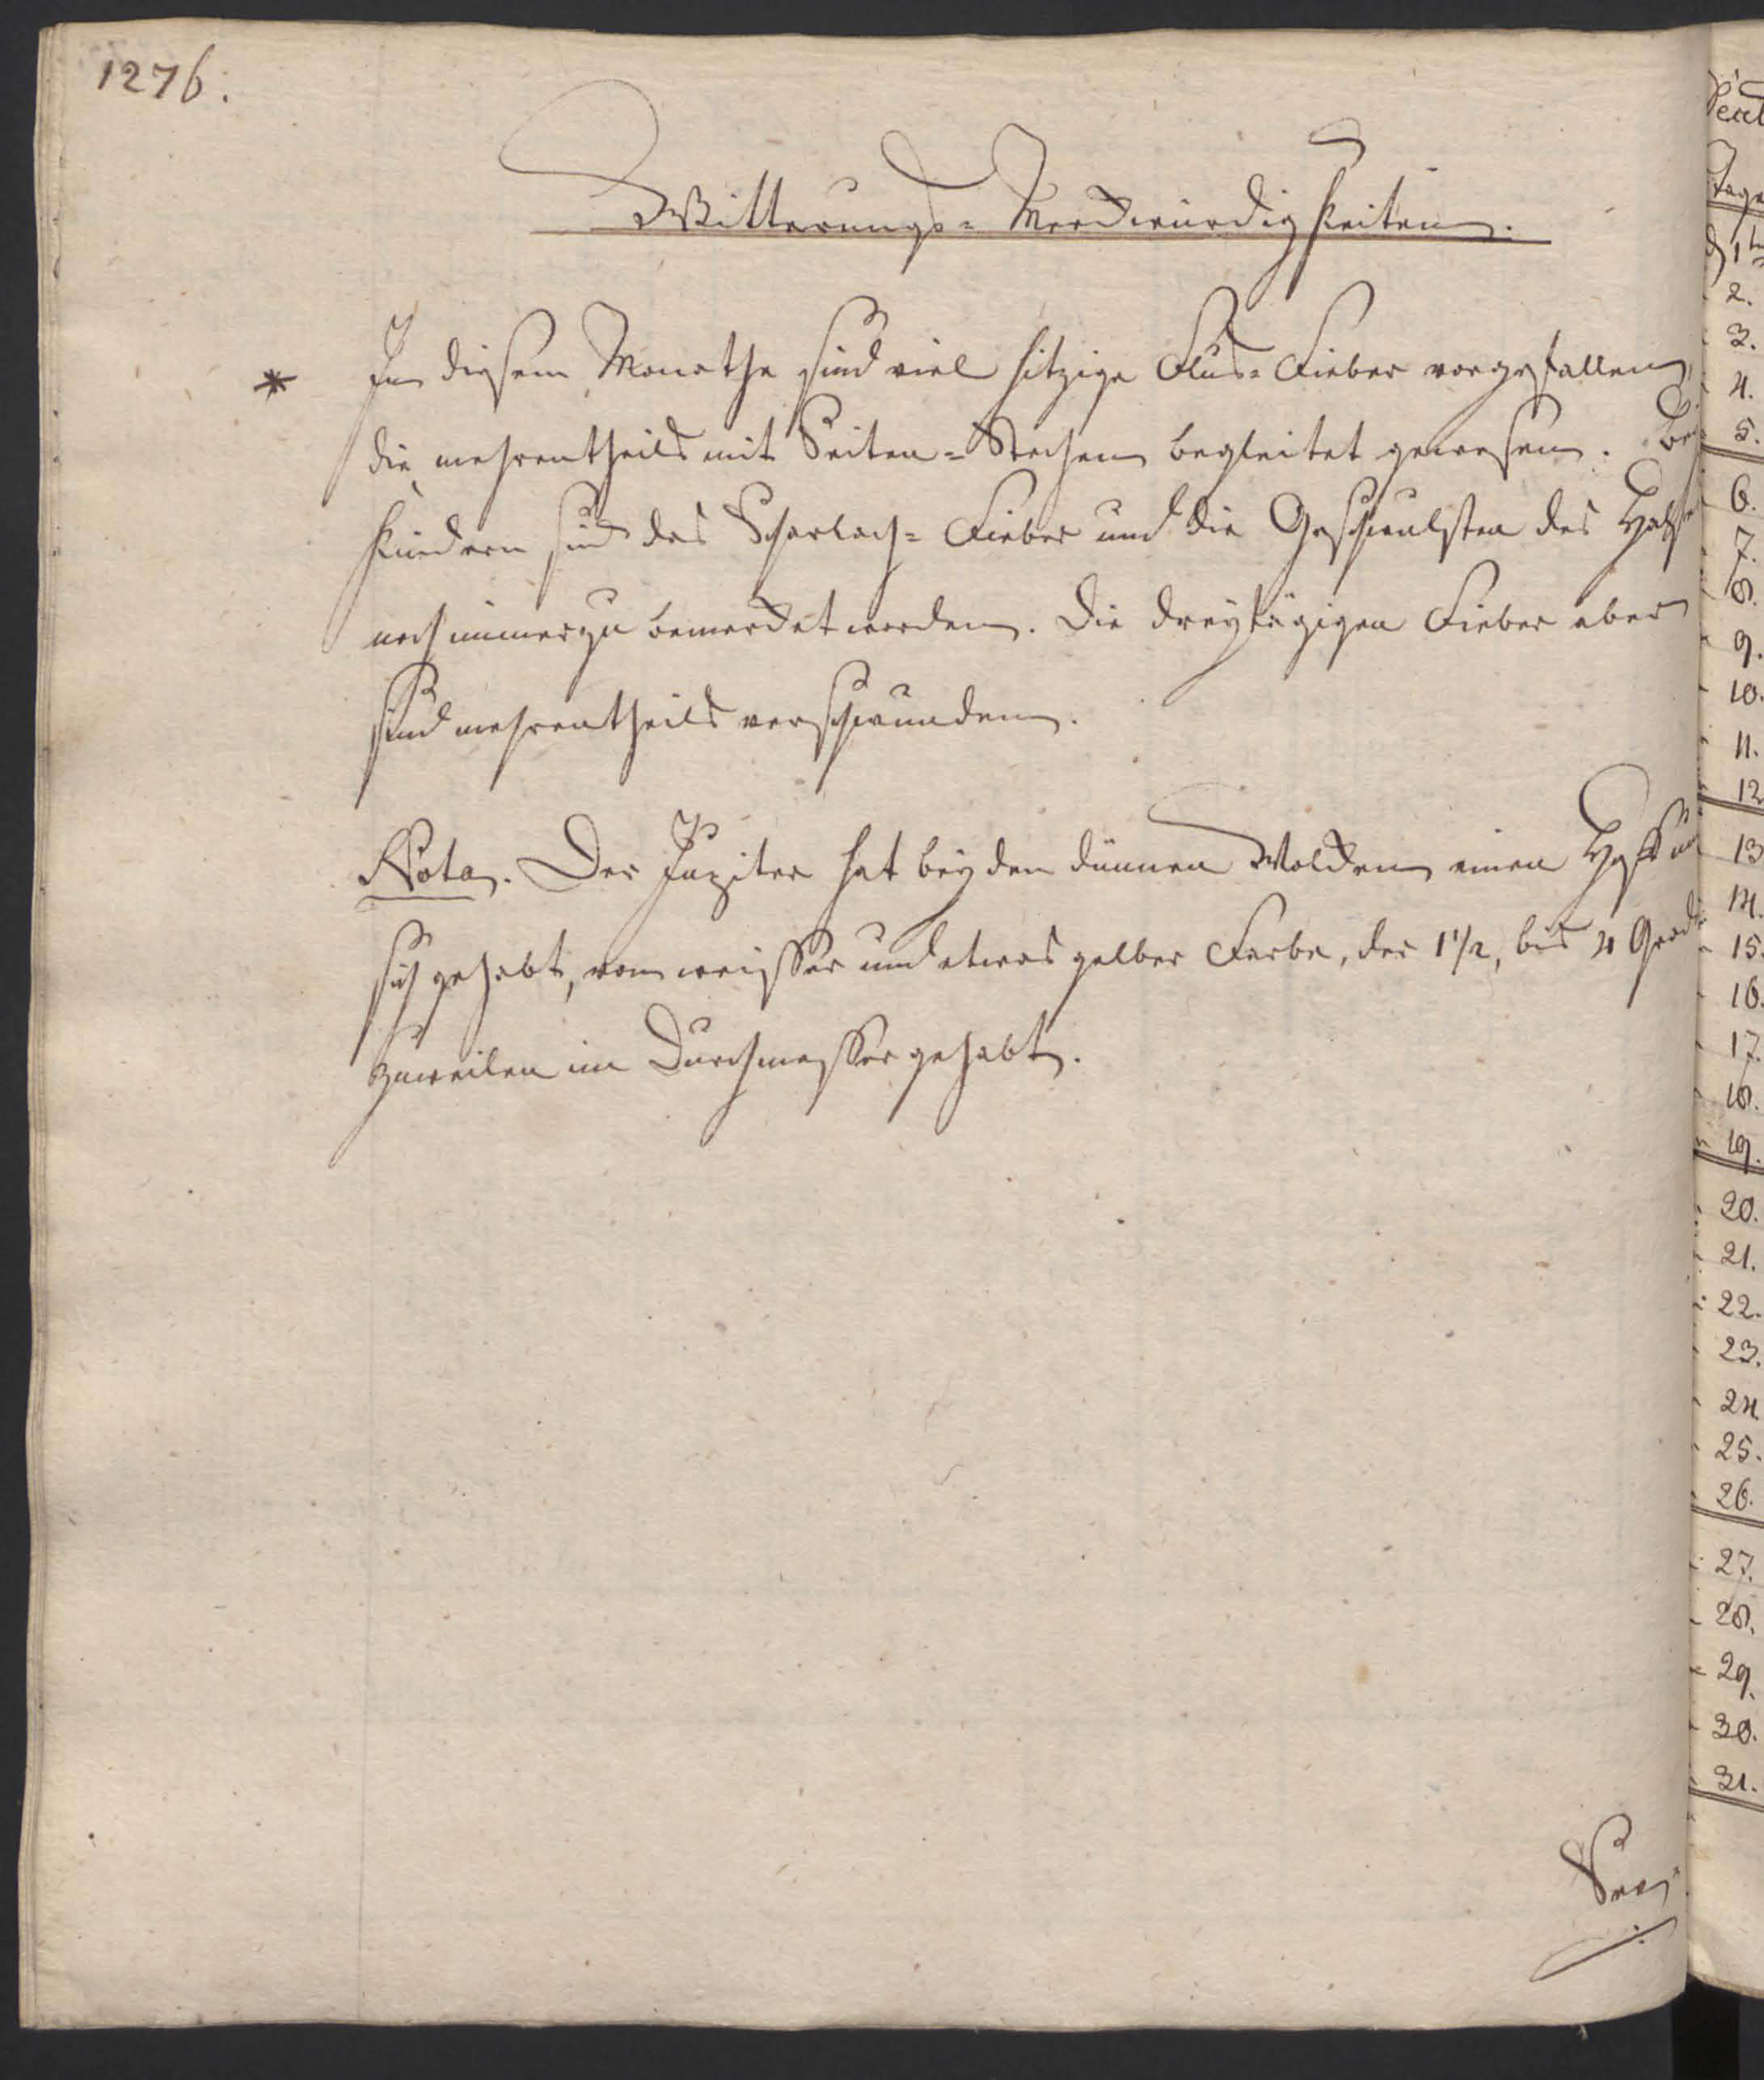 1276.
Witterungs-Merckwürdigkeiten.
* In diesem Monathe sind viel hitzige Flus-Fieber vorgefallen,
die mehrentheils mit Seiten-Stechen begleitet gewesen. Bey
Kindern sind das Scharlach-Fieber und die Geschwulsten des Halses
noch immerzu bemercket worden. Die dreytägigen Fieber aber
sind mehrentheils verschwunden.
Nota. Der Jupiter hat bey den dünnen Wolcken einen Hof um
sich gehabt, von weisser und etwas gelber Farbe, der 1 1/2, bis 4 Grad
zuweilen im Durchmesser gehabt.
Tage
2.
3.
4.
5.
6.
7.
8.
9.
10.
11.
12
13
14.
15.
16.
17.
18.
19.
20.
21.
22.
23.
24
25.
26.
27.
28.
29.
30.
31.